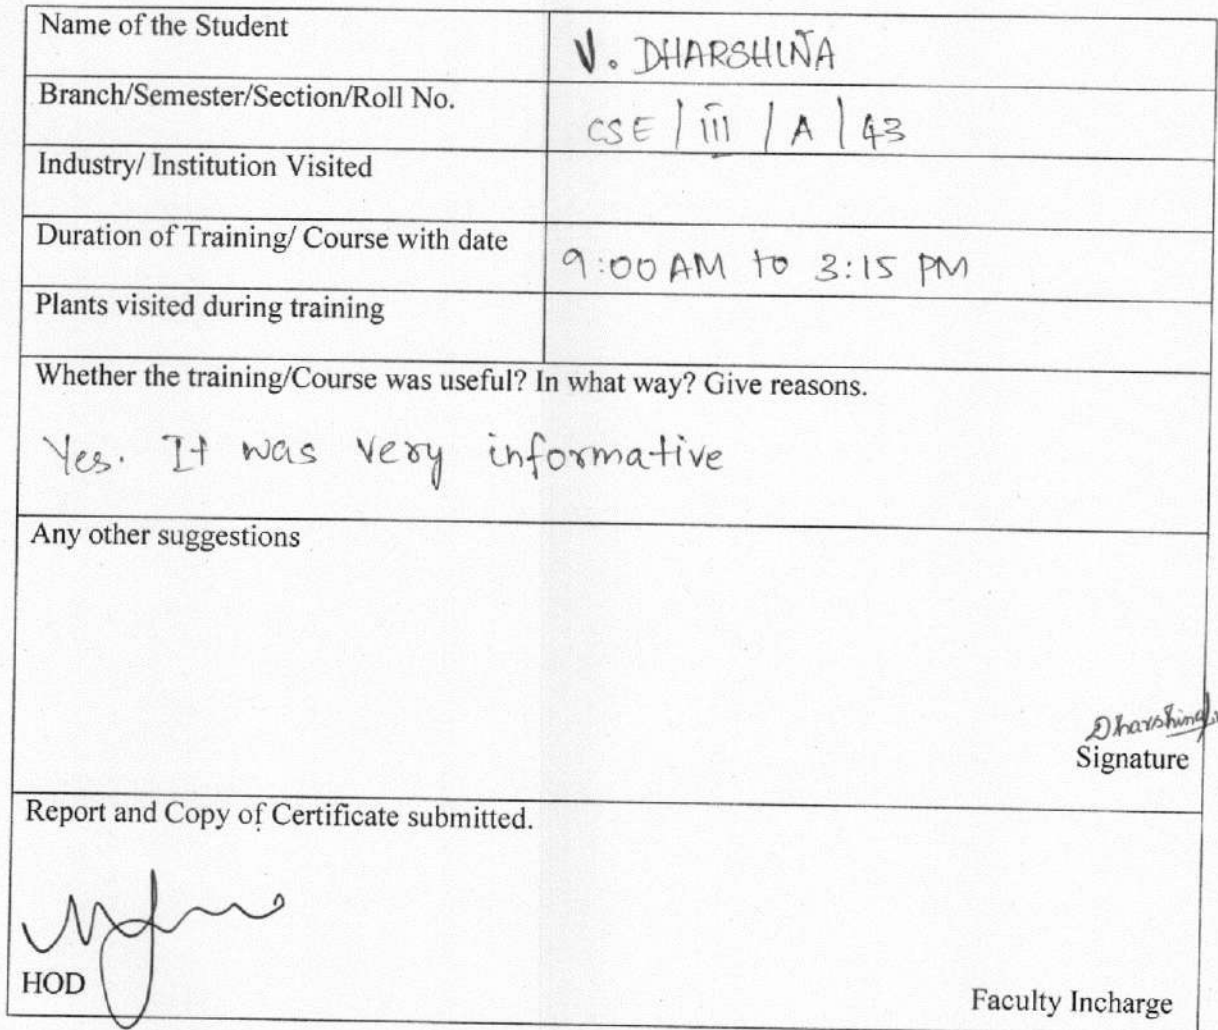 Name of the Student
V. DHARSHINA
Branch/Semester/Section/Roll No.
CSE / III / A / 43
Industry/ Institution Visited
Duration of Training/ Course with date
9:00 AM to 3:15 PM
Plants visited during training
Whether the training/Course was useful? In what way? Give reasons.
Yes. It was very informative
Any other suggestions
Signature
Report and Copy of Certificate submitted.
HOD
Faculty Incharge